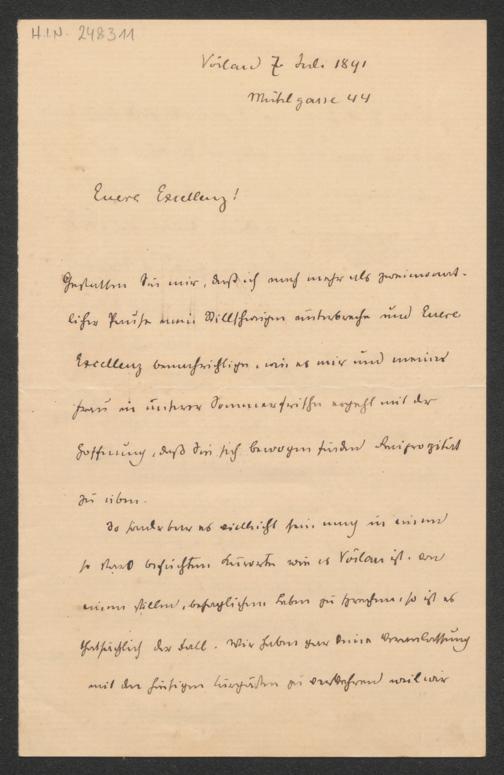 H.I.N. 248311
Vöslau 7 Jul. 1891
Mühlgasse 44
Euere Excellenz!
Gestatten Sie mir, daß ich nach mehr als zweimonat-
licher Pause mein Stillschweigen unterbreche und Euere
Excellenz benachrichtige, wie es mir und meiner
Frau in unserer Sommerfrische ergeht mit der
Hoffnung, daß Sie sich bewogen finden Reciprozität
zu üben.
So sonderbar es vielleicht sein mag in einem
so stark besuchten Kurorte wie es Vöslau ist, von
einem stillen, behaglichen Leben zu sprechen, so ist es
thatsächlich der Fall. Wir haben gar keine Veranlassung
mit den hiesigen Kurgästen zu verkehren weil wir